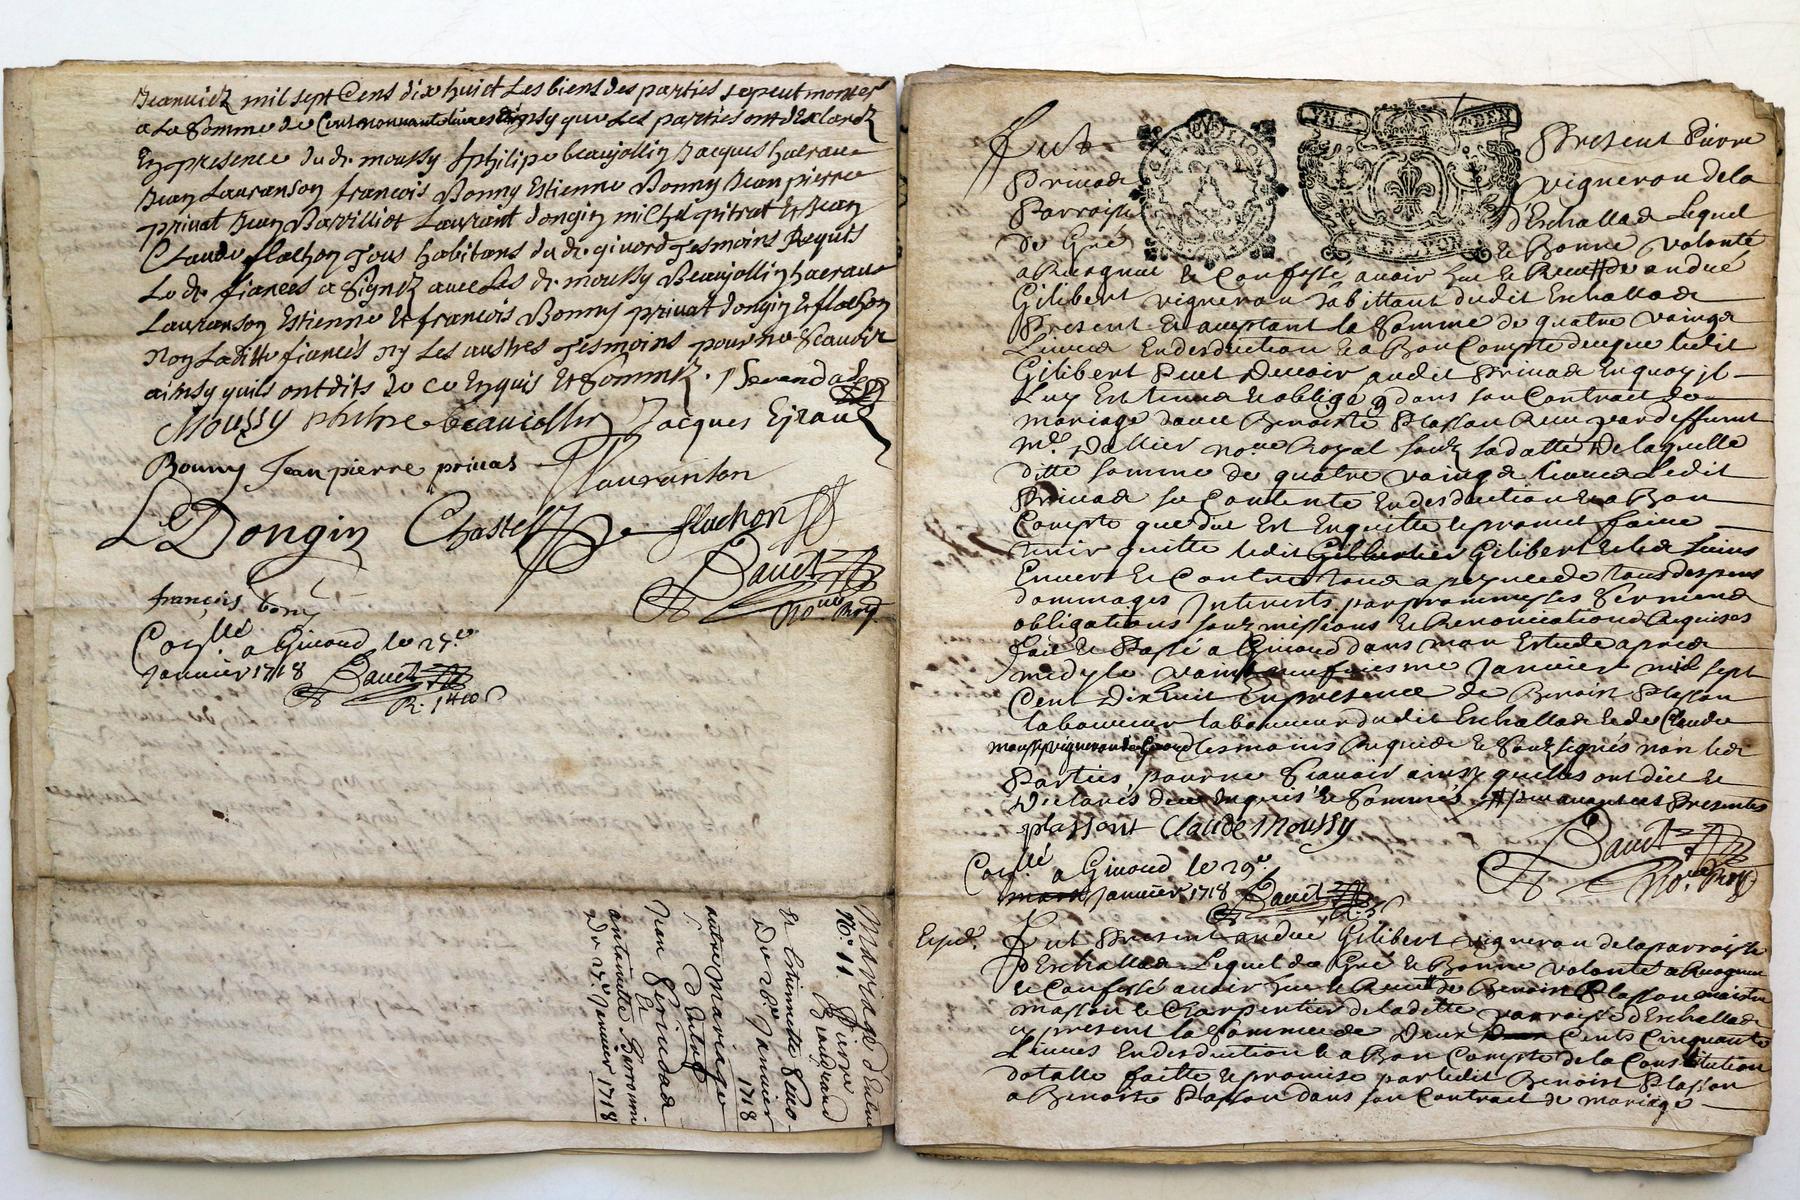 Jeanvier mil sept Cens dix huict Les biens des parties se peut monter
a La Somme de Cent nonnante livres Ainsy que Les parties ont declaré
En presence du dr. moussy philipe beaujollin Jacques
Jean Lauranson francois Bonny Estienne Bonny Jean pierre
privat Jean Laurant dongin michel pitrat Et Jean
Claude flachon Tous habitans du dt. givord Tesmoins Requis
Le dt. fiancés a Signez avec Les dt. moussy Beaujollin
Lauranson Estienne Et francois Bonny privat dongin Et flachon
Non Laditte fiancés Ny Les austres Tesmoins pour ne Scavoir
ainsy quils ont dits de ce Enquis Et Sommez.
Moussy beaujollin Jacques
Bonny Jean pierre privas Lauranson
Dongin Chastel flachon
Bauet
No.re Roy.
françois bony
Con.llé a Givord le 27.e
Janvier 1718 Bauet
Mariage d'Entre
No. 11. Pierre
Et Estiennette
Du 26.e Janvier
1718
autre Mariage
d'Entre
Jean
Et
anthoinette
Du 27.e Janvier 1718
GEN LYON
Fut Present Pierre
Privat vigneron de la
Parroisse d'Eschallas Lequel
de Gré et Bonne volonté
a Recognu et Confessé avoir heu et Receu de andré
Gilibert vigneron habittant dudit Eschallas
Present et aceptant la Somme de quatre vaingt
Livres En desduction et a Bon Compte de ce que ledit
Gilibert Peut Devoir audit Privas En quoy jl
Luy Est tenu et obligé dans son Contrat de
mariage avec Benoiste Plasson Receu par deffunt
M.e Dallier no.re Royal souz sa datte De laquelle
ditte somme de quatre vaingt livres Ledit
Privas se Contente En desduction et a Bon
Compte que dut Est Enquitte et promet faire
tenir quitte ledit Gilibert et les siens
Envers et Contre tous a peyne de tous despens
dommages Interests par prommesses Sermens
obligations souzmissions et Renonciations Requises
fait et Passé a Givord dans mon Estude apres
midy le vaint neufviesme Janvier mil sept
Cent Dix huit En presence de Benoist Plasson
laboureur laboureur dudit Eschallas et de Claude
moussy vigneron de Givord tesmoins Requis et Souzsignés non les
Parties pour ne Scavoir ainsy quelles ont dict et
Declarés de ce Enquis et Sommés
plassont Claude Moussy
Bauet
No.re Roy
Con.llé a Givord le 29.e
Janvier 1718 Bauet
Exped.
Fut Present andré Gilibert vigneron de la parroisse
d'Eschallas Lequel de Gré et Bonne volonté a Recognu
et Confessé avoir heu et Receu de Benoist Plasson maistre
masson et Charpentier de laditte parroisse d'Eschallas
cy present la Somme de Deux Cents Cinquante
Livres En desduction et a Bon Compte de la Constitution
dotalle faitte et promise par ledit Benoist Plasson
a Benoiste Plasson dans son Contrat de mariage